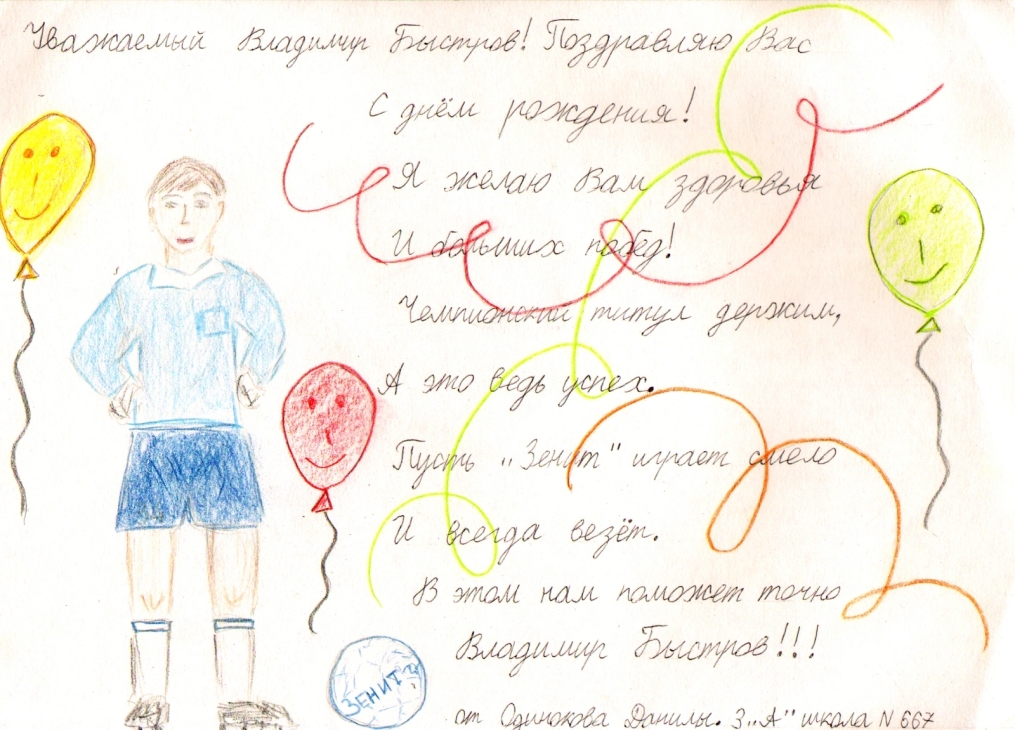 Уважаемый Владимир Быстров! Поздравляю Вас
С днём рождения!
Я желаю Вам здоровья
И больших побед!
Чемпионский титул держим,
А это ведь успех.
Пусть „Зенит" играет смело
И всегда везёт.
В этом нам поможет точно
Владимир Быстров!!!
ЗЕНИТ
от Одинокова Данилы. 3„А" школа N 667